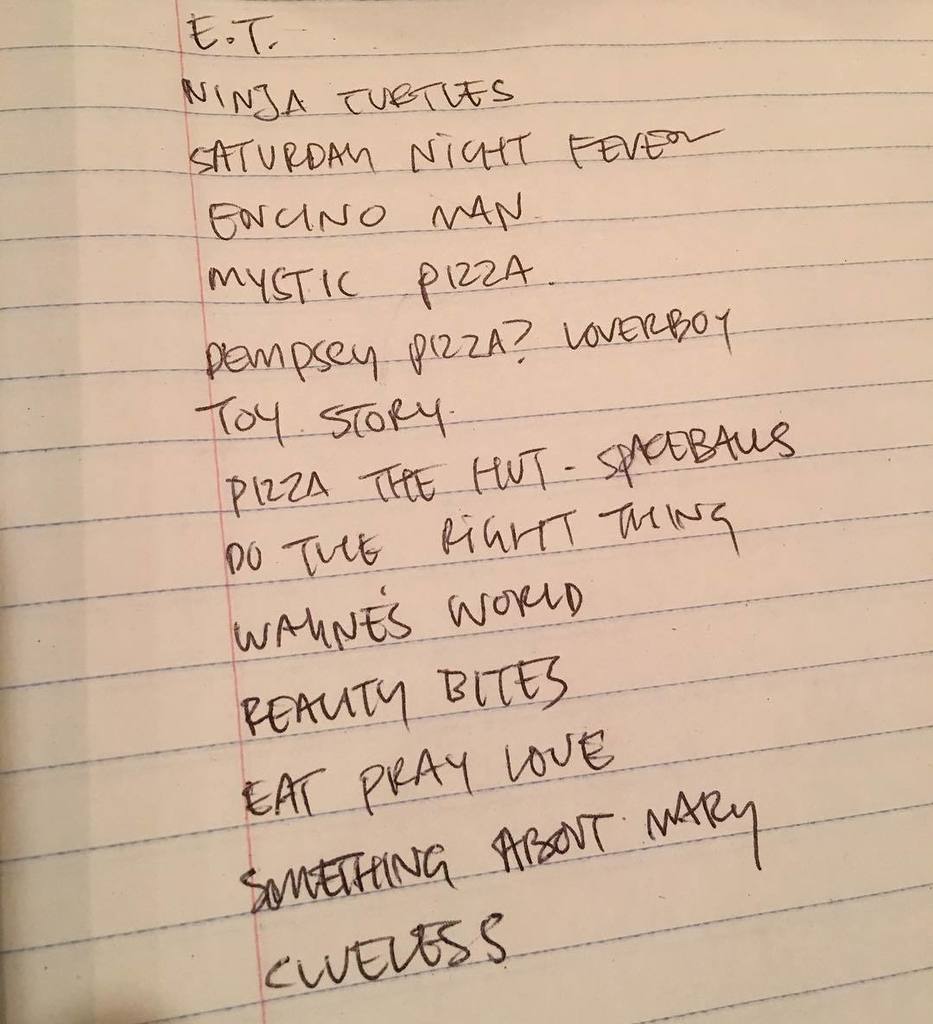 E.T.
NINJA TURTLES
SATURDAY NIGHT FEVER
ENCINO MAN
MYSTIC PIZZA.
DEMPSEY PIZZA? LOVERBOY
TOY STORY.
PIZZA THE HUT - SPACEBALLS
DO THE RIGHT THING
WAYNE'S WORLD
REALITY BITES
EAT PRAY LOVE
SOMETHING ABOUT MARY
CLUELESS